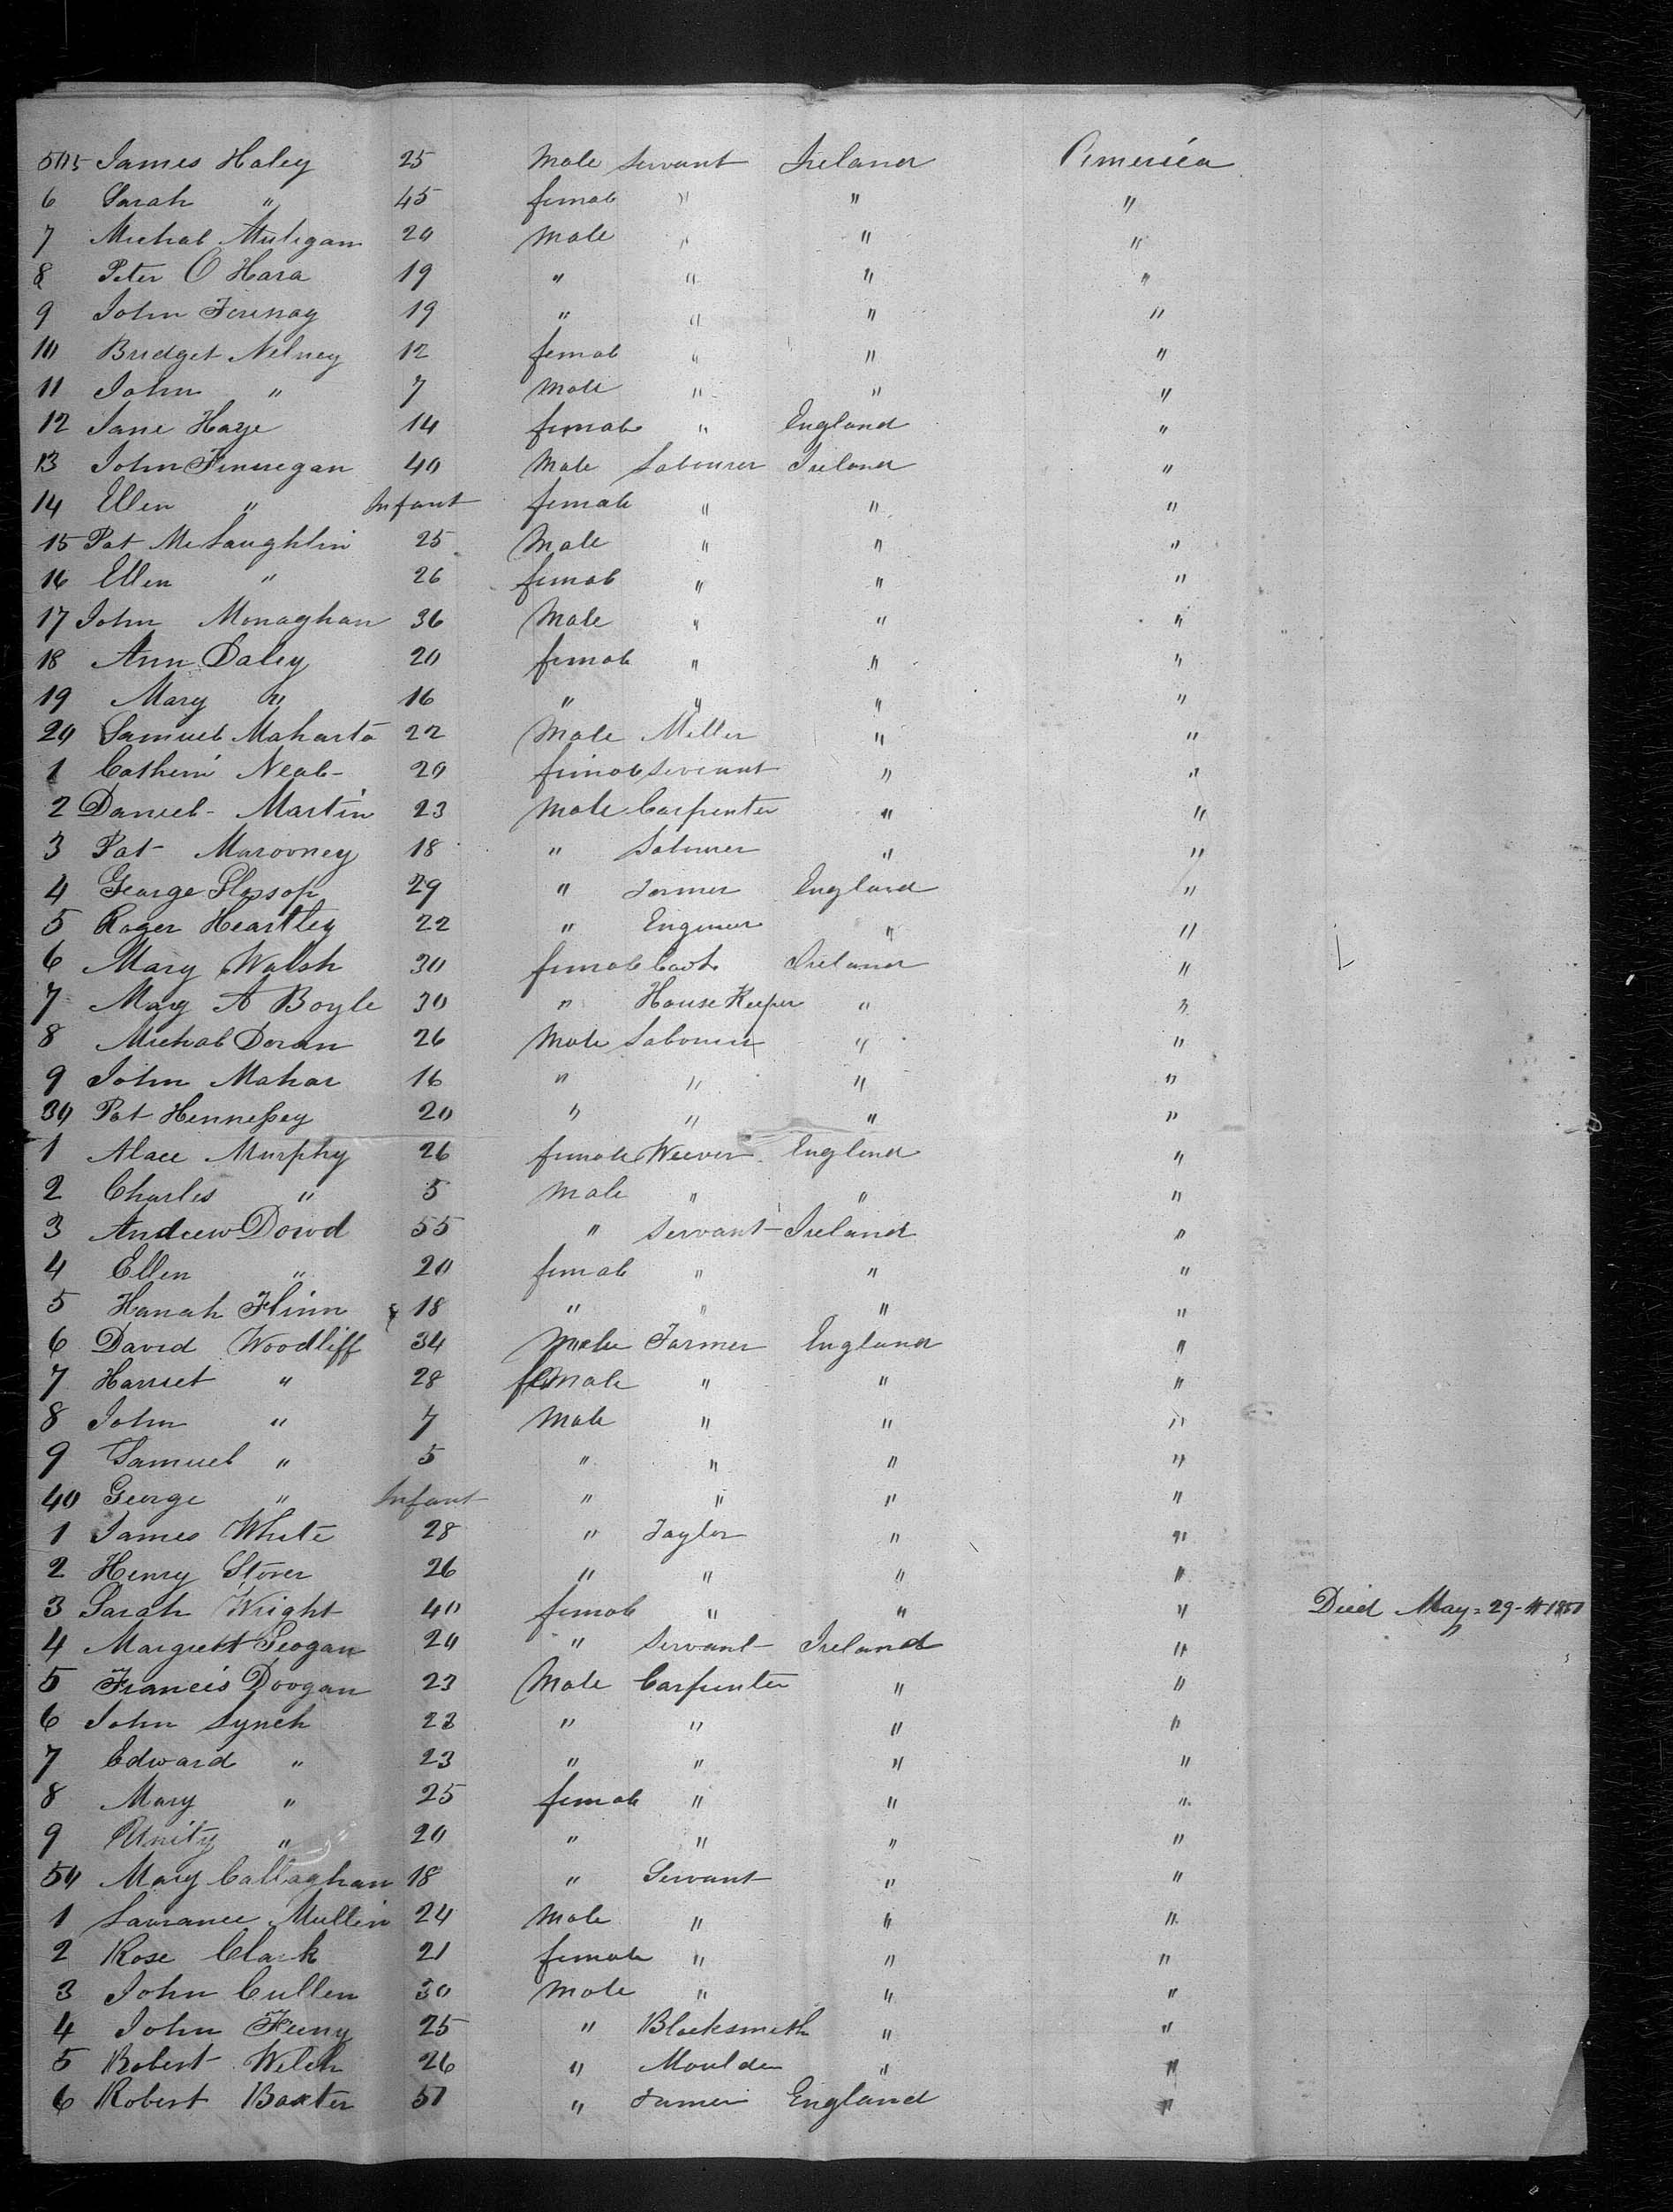 505 James Haley 25 Male Servant Ireland America
6 Sarah " 45 female " " "
7 Michal Muligan 20 Male " " "
8 Peter O Hara 19 " " " "
9 John 19 " " " "
10 Bridget Nelney 12 female " " "
11 John " 7 Male " " "
12 Jane Haye 14 female " England "
13 John Finnegan 40 Male Labourer Ireland "
14 Ellen " Infant female " " "
15 Pat McLaughlin 25 Male " " "
16 Ellen " 26 female " " "
17 John Monaghan 36 Male " " "
18 Ann Daley 20 female " " "
19 Mary " 16 " " " "
20 Samuel 22 Male Miller " "
1 Catherin Neal 20 female Servant " "
2 Daniel Martin 23 Male Carpenter " "
3 Pat Marooney 18 " Labourer " "
4 George Glossop 29 " Farmer England "
5 Roger Heartley 22 " Engineer " "
6 Mary Walsh 30 female Cook Ireland "
7 Mary A Boyle 30 " House Keeper " "
8 Michal Doran 26 Male Labourer " "
9 John Mahar 16 " " " "
30 Pat Hennessey 20 " " " "
1 Alace Murphy 26 female Weever England "
2 Charles " 5 Male " " "
3 Andrew Dowd 55 " Servant Ireland "
4 Ellen " 20 female " " "
5 Hanah Flinn 18 " " " "
6 David Woodliff 34 Male Farmer England "
7 Harriet " 28 feMale " " "
8 John " 7 Male " " "
9 Samuel " 5 " " " "
40 George " Infant " " " "
1 James White 28 " Taylor " "
2 Henry Storer 26 " " " "
3 Sarah Wright 40 female " " " Died May 29
4 Margrett Geogan 20 " Servant Ireland "
5 Francis Doogan 23 Male Carpenter " "
6 John Lynch 23 " " " "
7 Edward " 23 " " " "
8 Mary " 25 female " " "
9 Unity " 20 " " " "
50 Mary Callaghan 18 " Servant " "
1 Laurance Mullin 24 Male " " "
2 Rose Clark 21 female " " "
3 John Cullen 30 Male " " "
4 John Feeny 25 " Blacksmith " "
5 Robert Welch 26 " Moulder " "
6 Robert Baxter 51 " Farmer England "